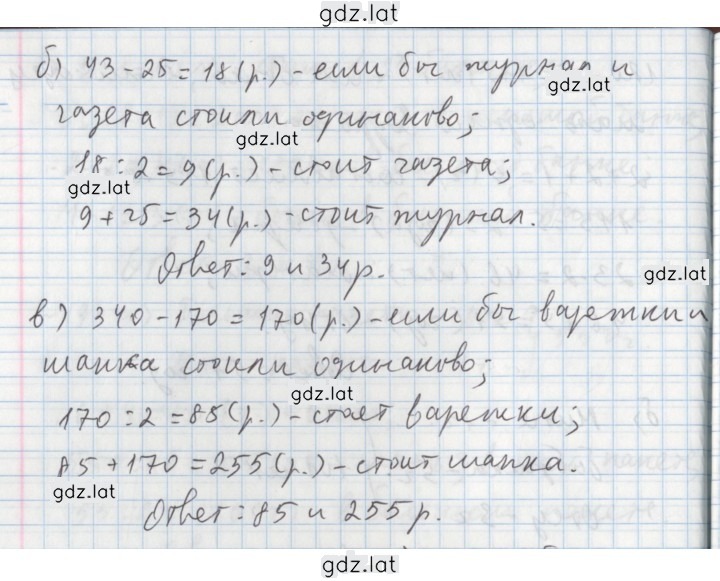 gdz.lat
б) 43 - 25 = 18 (р.) - если бы журнал и
gdz.lat
газета стоили одинаково;
gdz.lat
18 : 2 = 9 (р.) - стоит газета;
gdz.lat
9 + 25 = 34 (р.) - стоит журнал.
Ответ: 9 и 34 р.
gdz.lat
в) 340 - 170 = 170 (р.) - если бы варежки и
шапка стоили одинаково;
gdz.lat
170 : 2 = 85 (р.) - стоят варежки;
85 + 170 = 255 (р.) - стоит шапка.
gdz.lat
Ответ: 85 и 255 р.
gdz.lat